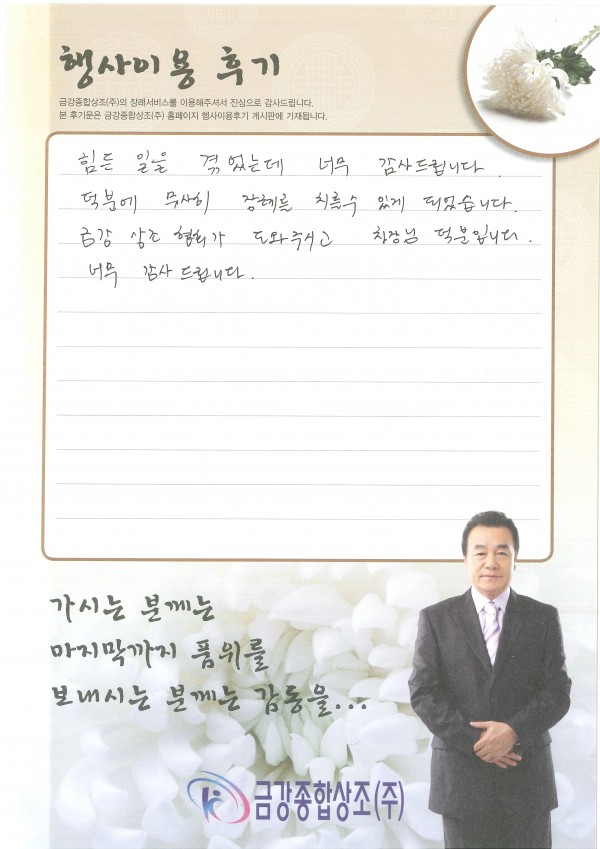 행사이용 후기
금강종합상조(주)의 장례서비스를 이용해주셔서 진심으로 감사드립니다.
본 후기문은 금강종합상조(주) 홈페이지 행사이용후기 게시판에 기재됩니다.
힘든 일을 겪었는데 너무 감사드립니다.
덕분에 무사히 장례를 치를수 있게 되었습니다.
금강 상조 협회가 도와주시고 팀장님 덕분입니다.
너무 감사 드립니다.
가시는 분께는
마지막까지 품위를
보내시는 분께는 감동을...
금강종합상조(주)